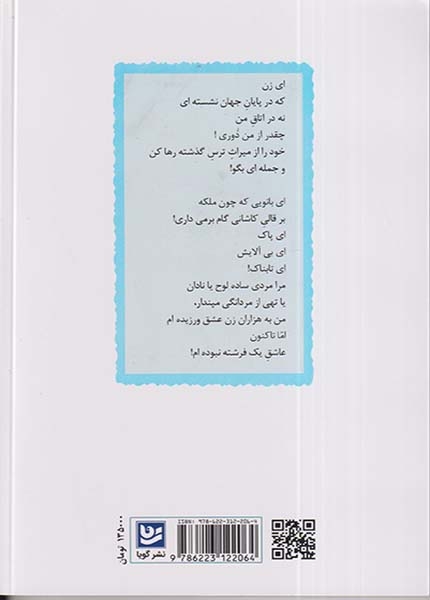 ای زن
که در پایانِ جهان نشسته ای
نه در اتاقِ من
چقدر از من دُوری !
خود را از میراثِ ترسِ گذشته رها کن
و جمله ای بگو!
ای بانویی که چون ملکه
بر قالیِ کاشانی گام برمی داری!
ای پاک
ای بی آلایش
ای تابناک!
مرا مردی ساده لوح یا نادان
یا تهی از مردانگی مپندار.
من به هزاران زن عشق ورزیده ام
امّا تاکنون
عاشقِ یک فرشته نبوده ام!
ISBN: 978-622-312-206-4
9 786223 122064
نشر گویا
۱۳۵۰۰۰ تومان